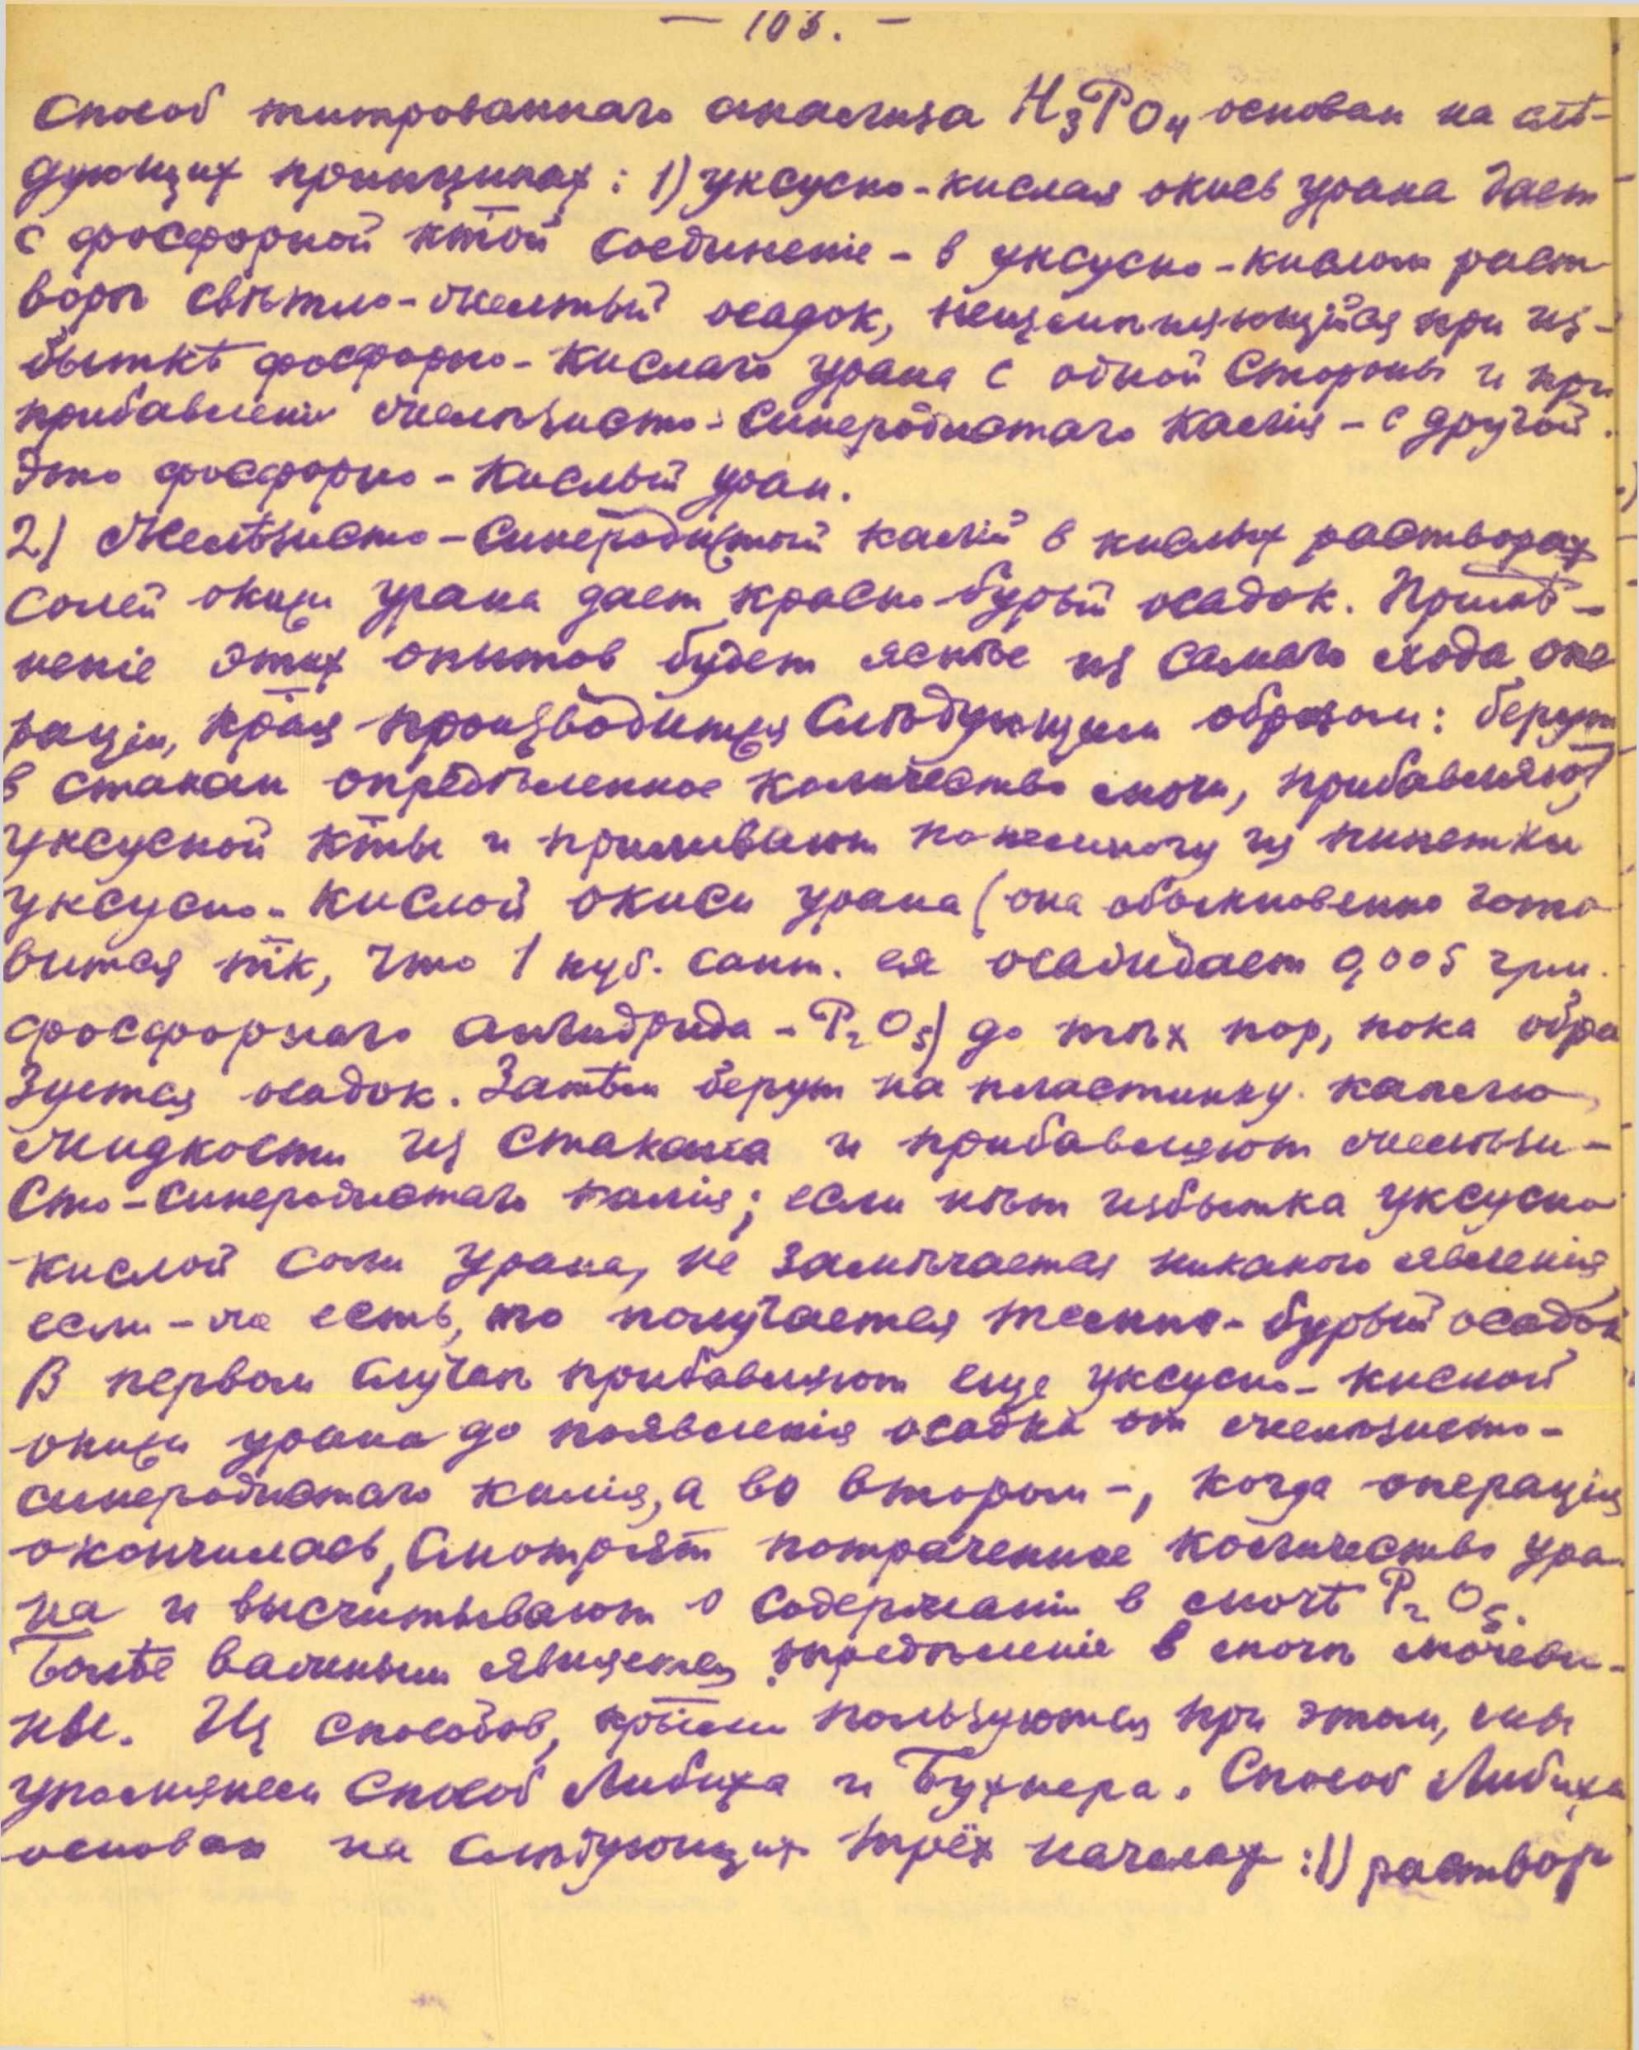 — 103. —
Способ титрованнаго анализа H₃PO₄ основан на слѣ-
дующих принципах: 1) уксусно-кислая окись урана дает
с фосфорной к̅т̅о̅й соединенiе - в уксусно-кислом раст
ворѣ свѣтло-желтый осадок, неизмѣняющiйся при из-
быткѣ фосфорно-кислаго урана с одной стороны и при
прибавленiи желѣзисто-синеродистаго калiя - с другой.
Это фосфорно-кислый уран.
2) Желѣзисто-синеродистый калiй в кислых растворах
солей окиси урана дает красно-бурый осадок. Примѣ-
ненiе этих опытов будет яснѣе из самаго хода опе
рацiи, к̅р̅а̅я производится слѣдующим образом: берут
в стакан опредѣленное количество мочи, прибавляют
уксусной к̅т̅ы и приливают понемногу из пипетки
уксусно-кислой окиси урана (она обыкновенно гото
вится т̅к, что 1 куб. сант. ея осаждает 0,005 грм.
фосфорнаго ангидрида - P₂O₅) до тѣх пор, пока обра
зуется осадок. Затѣм берут на пластинку каплю
жидкости из стакана и прибавляют желѣзи-
сто-синеродистаго калiя; если нѣт избытка уксусно
кислой соли урана, не замѣчается никакого явленiя,
если-же есть, то получается темно-бурый осадок
В первом случаѣ прибавляют еще уксусно-кислой
окиси урана до появленiя осадка от желѣзисто-
синеродистаго калiя, а во втором -, когда операцiя
окончилась, смотрят потраченное количество ура
на и высчитывают о содержанiи в мочѣ P₂O₅.
Болѣе важным является опредѣленiе в мочѣ мочеви-
ны. Из способов, к̅р̅ы̅ми пользуются при этом, мы
упомянем способ Либиха и Бухнера. Способ Либиха
основан на слѣдующих трёх началах: 1) раствор